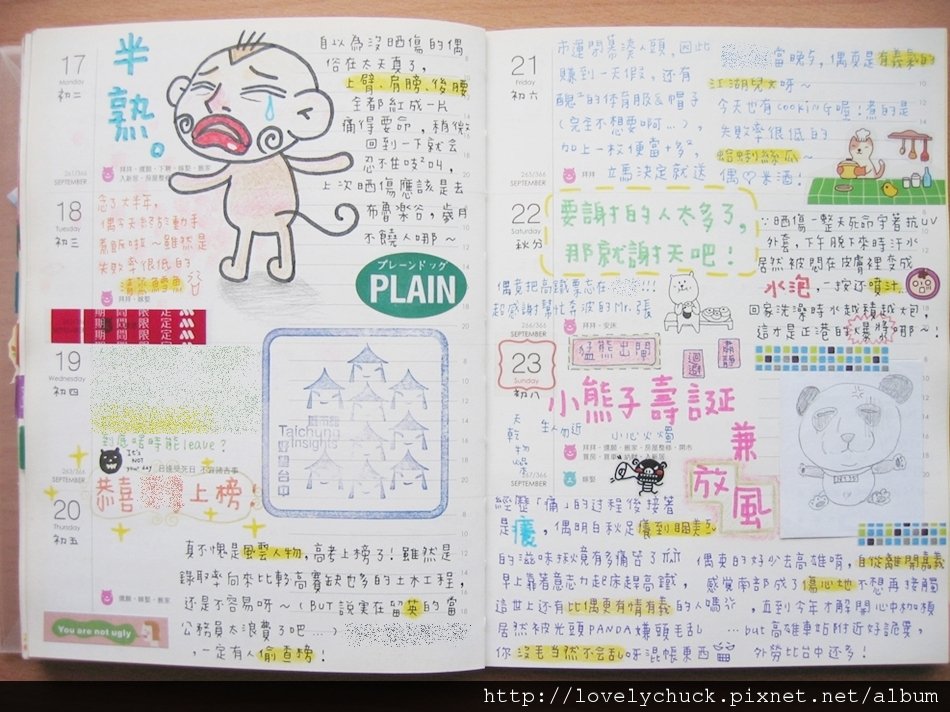 17
Monday
初二
半熟。
自以為沒晒傷的偶
俗在太天真了,
上臂、肩膀、後腰
全都紅成一片
痛得要命,稍微
回到一下就會
忍不住吱²叫,
上次晒傷應該是去
布魯樂谷,歲月
不饒人哪~
261/366
SEPTEMBER
18
Tuesday
初三
念了大半年,
偶今天終於動手
煮飯啦~雖然是
失敗率很低的
清蒸鱈魚
プレーンドッグ
PLAIN
期間限定
問題
19
Wednesday
初四
到底啥時能leave?
It's
NOT
your day
Taichung
Insights
好樣台中
263/366
SEPTEMBER
20
Thursday
初五
恭喜
上榜!
真不愧是風雲人物,高考上榜了!雖然是
錄取率向來比較高賽缺也多的土木工程,
還是不容易呀~(BUT說實在留英的當
公務員太浪費了吧...)
,一定有人偷查榜!
You are not ugly
21
Friday
初六
市運開幕湊人頭,因此
賺到一天假,還有
醜²的体育服&帽子
(完全不想要啊...),
加上一枚便當+多²,
立馬決定就送
當晚夯,偶真是有義氣的
江湖兒女呀~
今天也有cooking喔!煮的是
失敗率很低的
蛤蜊絲瓜~
偶♡米酒!
SEPTEMBER
22
Saturday
秋分
要謝的人太多了,
那就謝天吧!
偶竟把高鐵票忘在
超感謝幫忙奔波的Mr.張
∵晒傷一整天死命穿著抗UV
外套,下午脫下來時汗水
居然被悶在皮膚裡變成
水泡,一按還噴汁,
回家洗澡時水越積越大泡,
這才是正港的爆漿哪~!
266/366
SEPTEMBER
23
Sunday
初八
猛熊出閘
迴避
肅靜
小熊子壽誕
兼
放風
天乾物燥
生人勿近
小心火燭
經歷「痛」的過程後接著
是癢,偶明白秋足癢到睏美ㄍ
的滋味秋竟有多痛苦了
早上靠著意志力起床趕高鐵,
這世上還有比偶更有情有義的人嗎
居然被光頭PANDA嫌頭毛乱
你沒毛当然不会乱呀混帳東西
偶真的好少去高雄唷,自從離開嘉義
感覺南部成了傷心地不想再接觸
,直到今年才解開心中枷鎖
...but高雄車站附近好詭異,
外勞比台中还多!
http://lovelychuck.pixnet.net/album